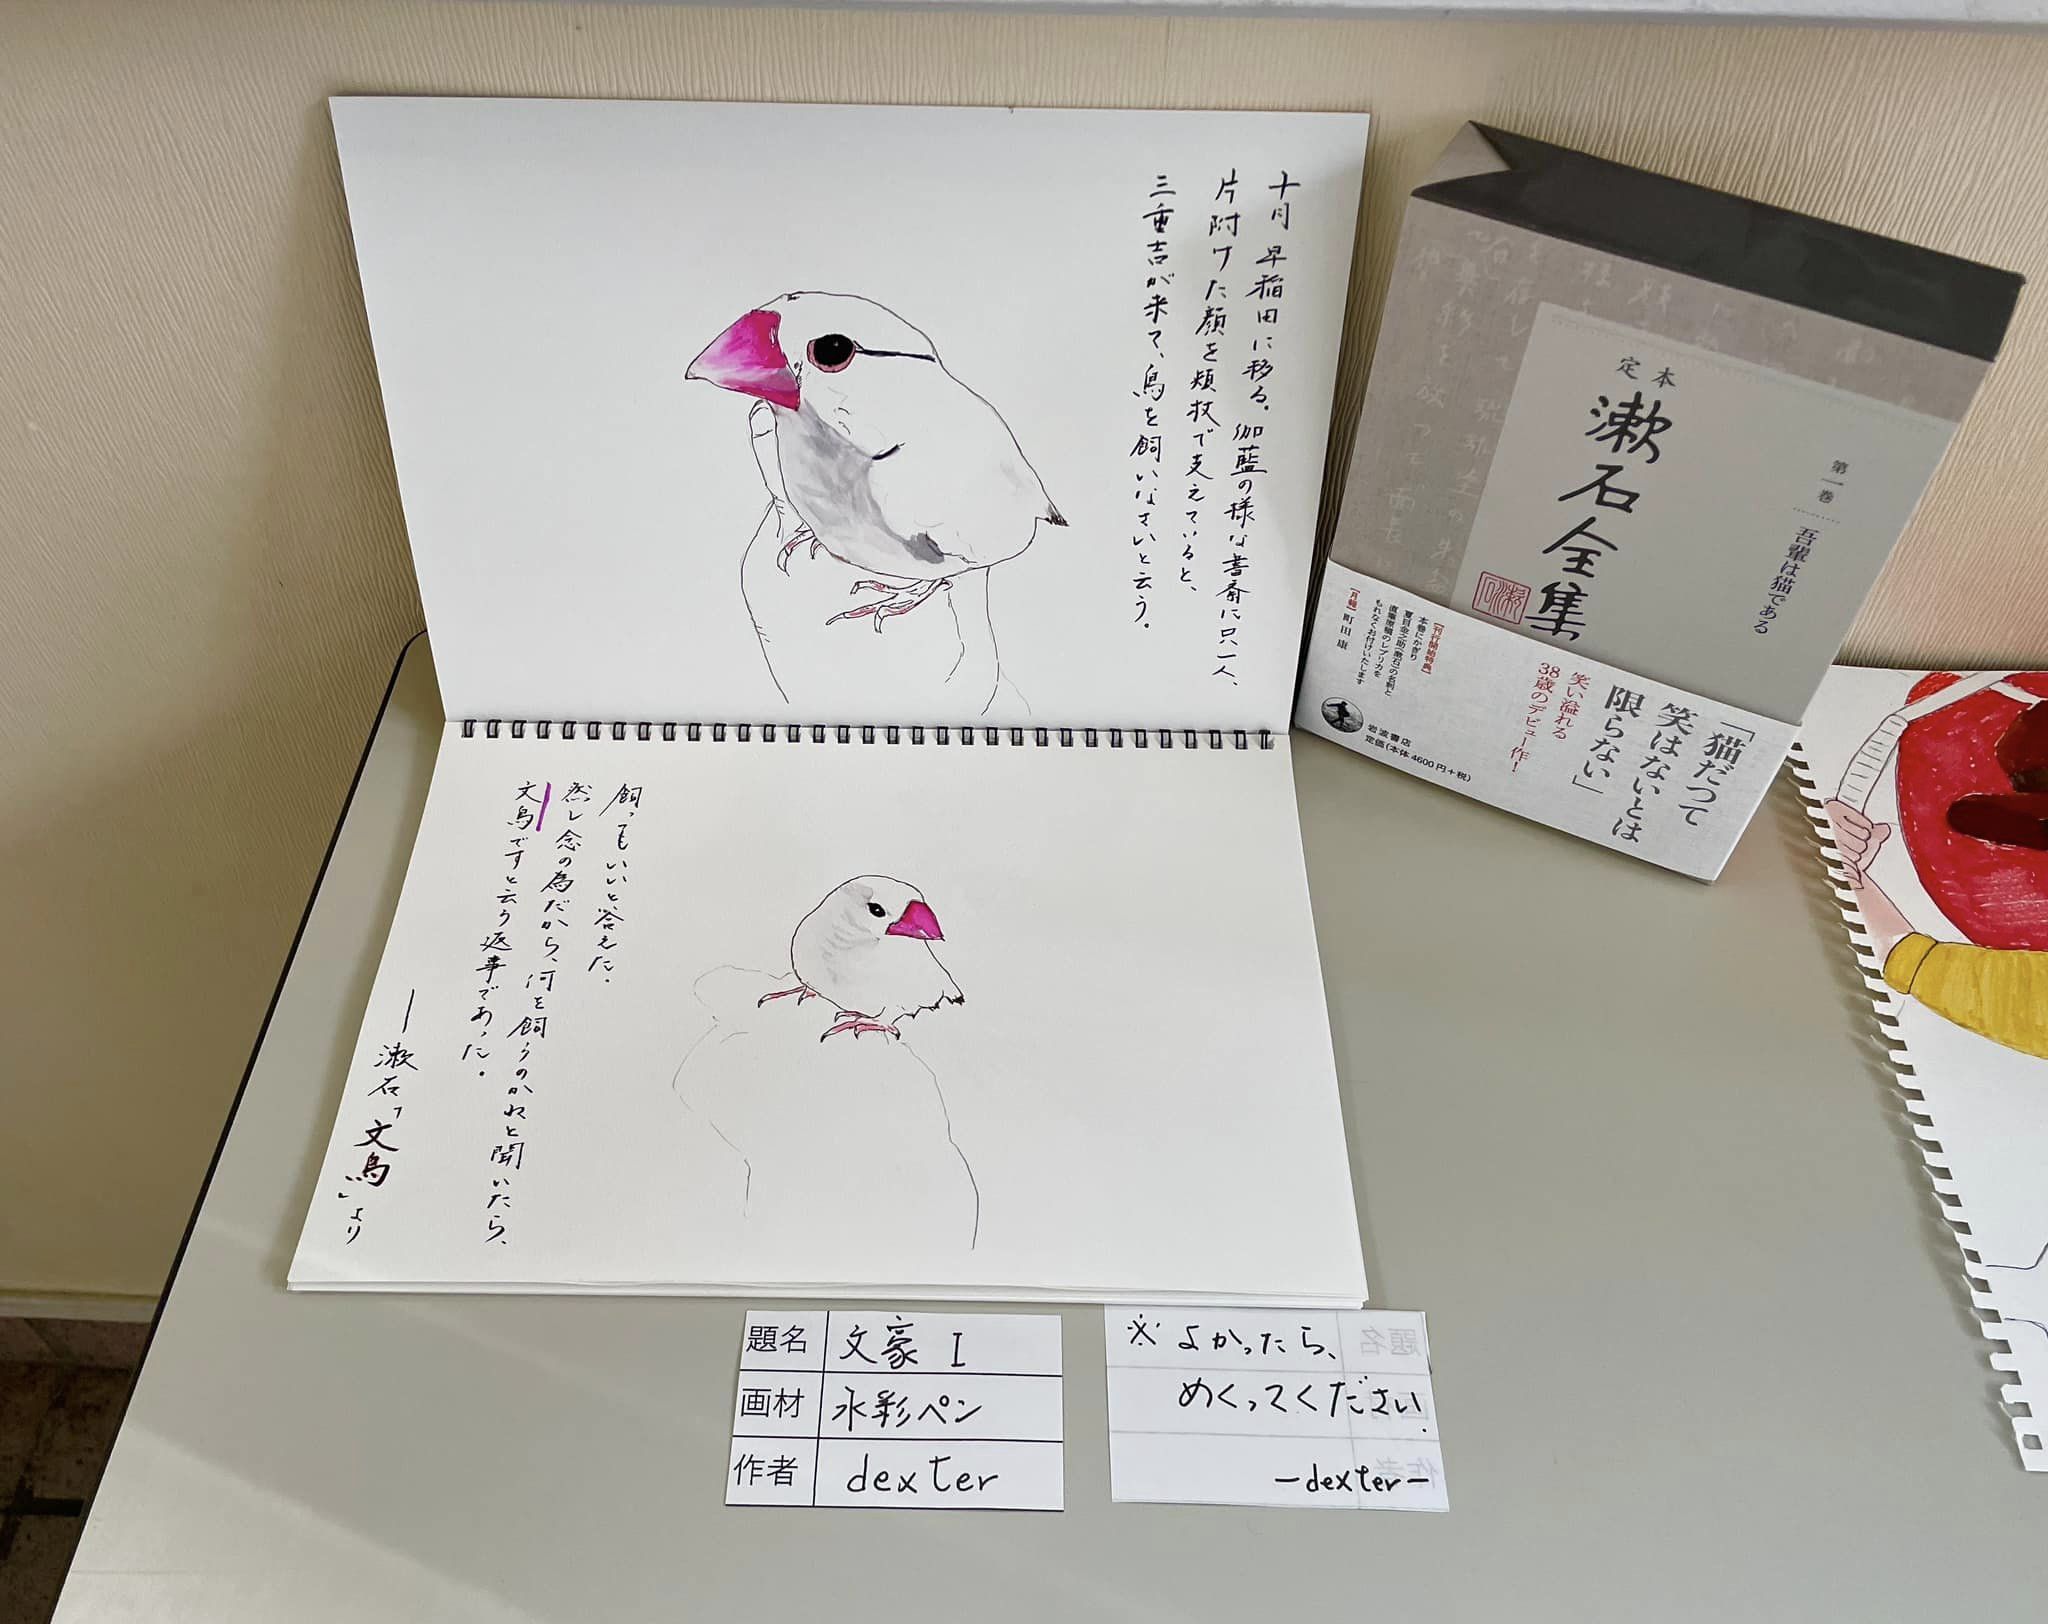 十月早稲田に移る。伽藍の様な書斎に只一人、
片附けた顔を頬杖で支えていると、
三重吉が来て、鳥を飼いなさいと云う。
飼ってもいいと答えた。
然し念の為だから、何を飼うのかねと聞いたら、
文鳥ですと云う返事であった。
──漱石「文鳥」より
定本
漱石全集
第一巻
吾輩は猫である
漱石
「猫だつて
笑はないとは
限らない」
笑い溢れる
38歳のデビュー作!
【刊行開始特典】
本巻にかぎり
夏目金之助(漱石)の名刺と
直筆原稿のレプリカを
もれなくお付けいたします
【月報】町田康
岩波書店
定価(本体4600円+税)
題名 文豪 I
画材 水彩ペン
作者 dexter
※よかったら、
めくってください.
-dexter-